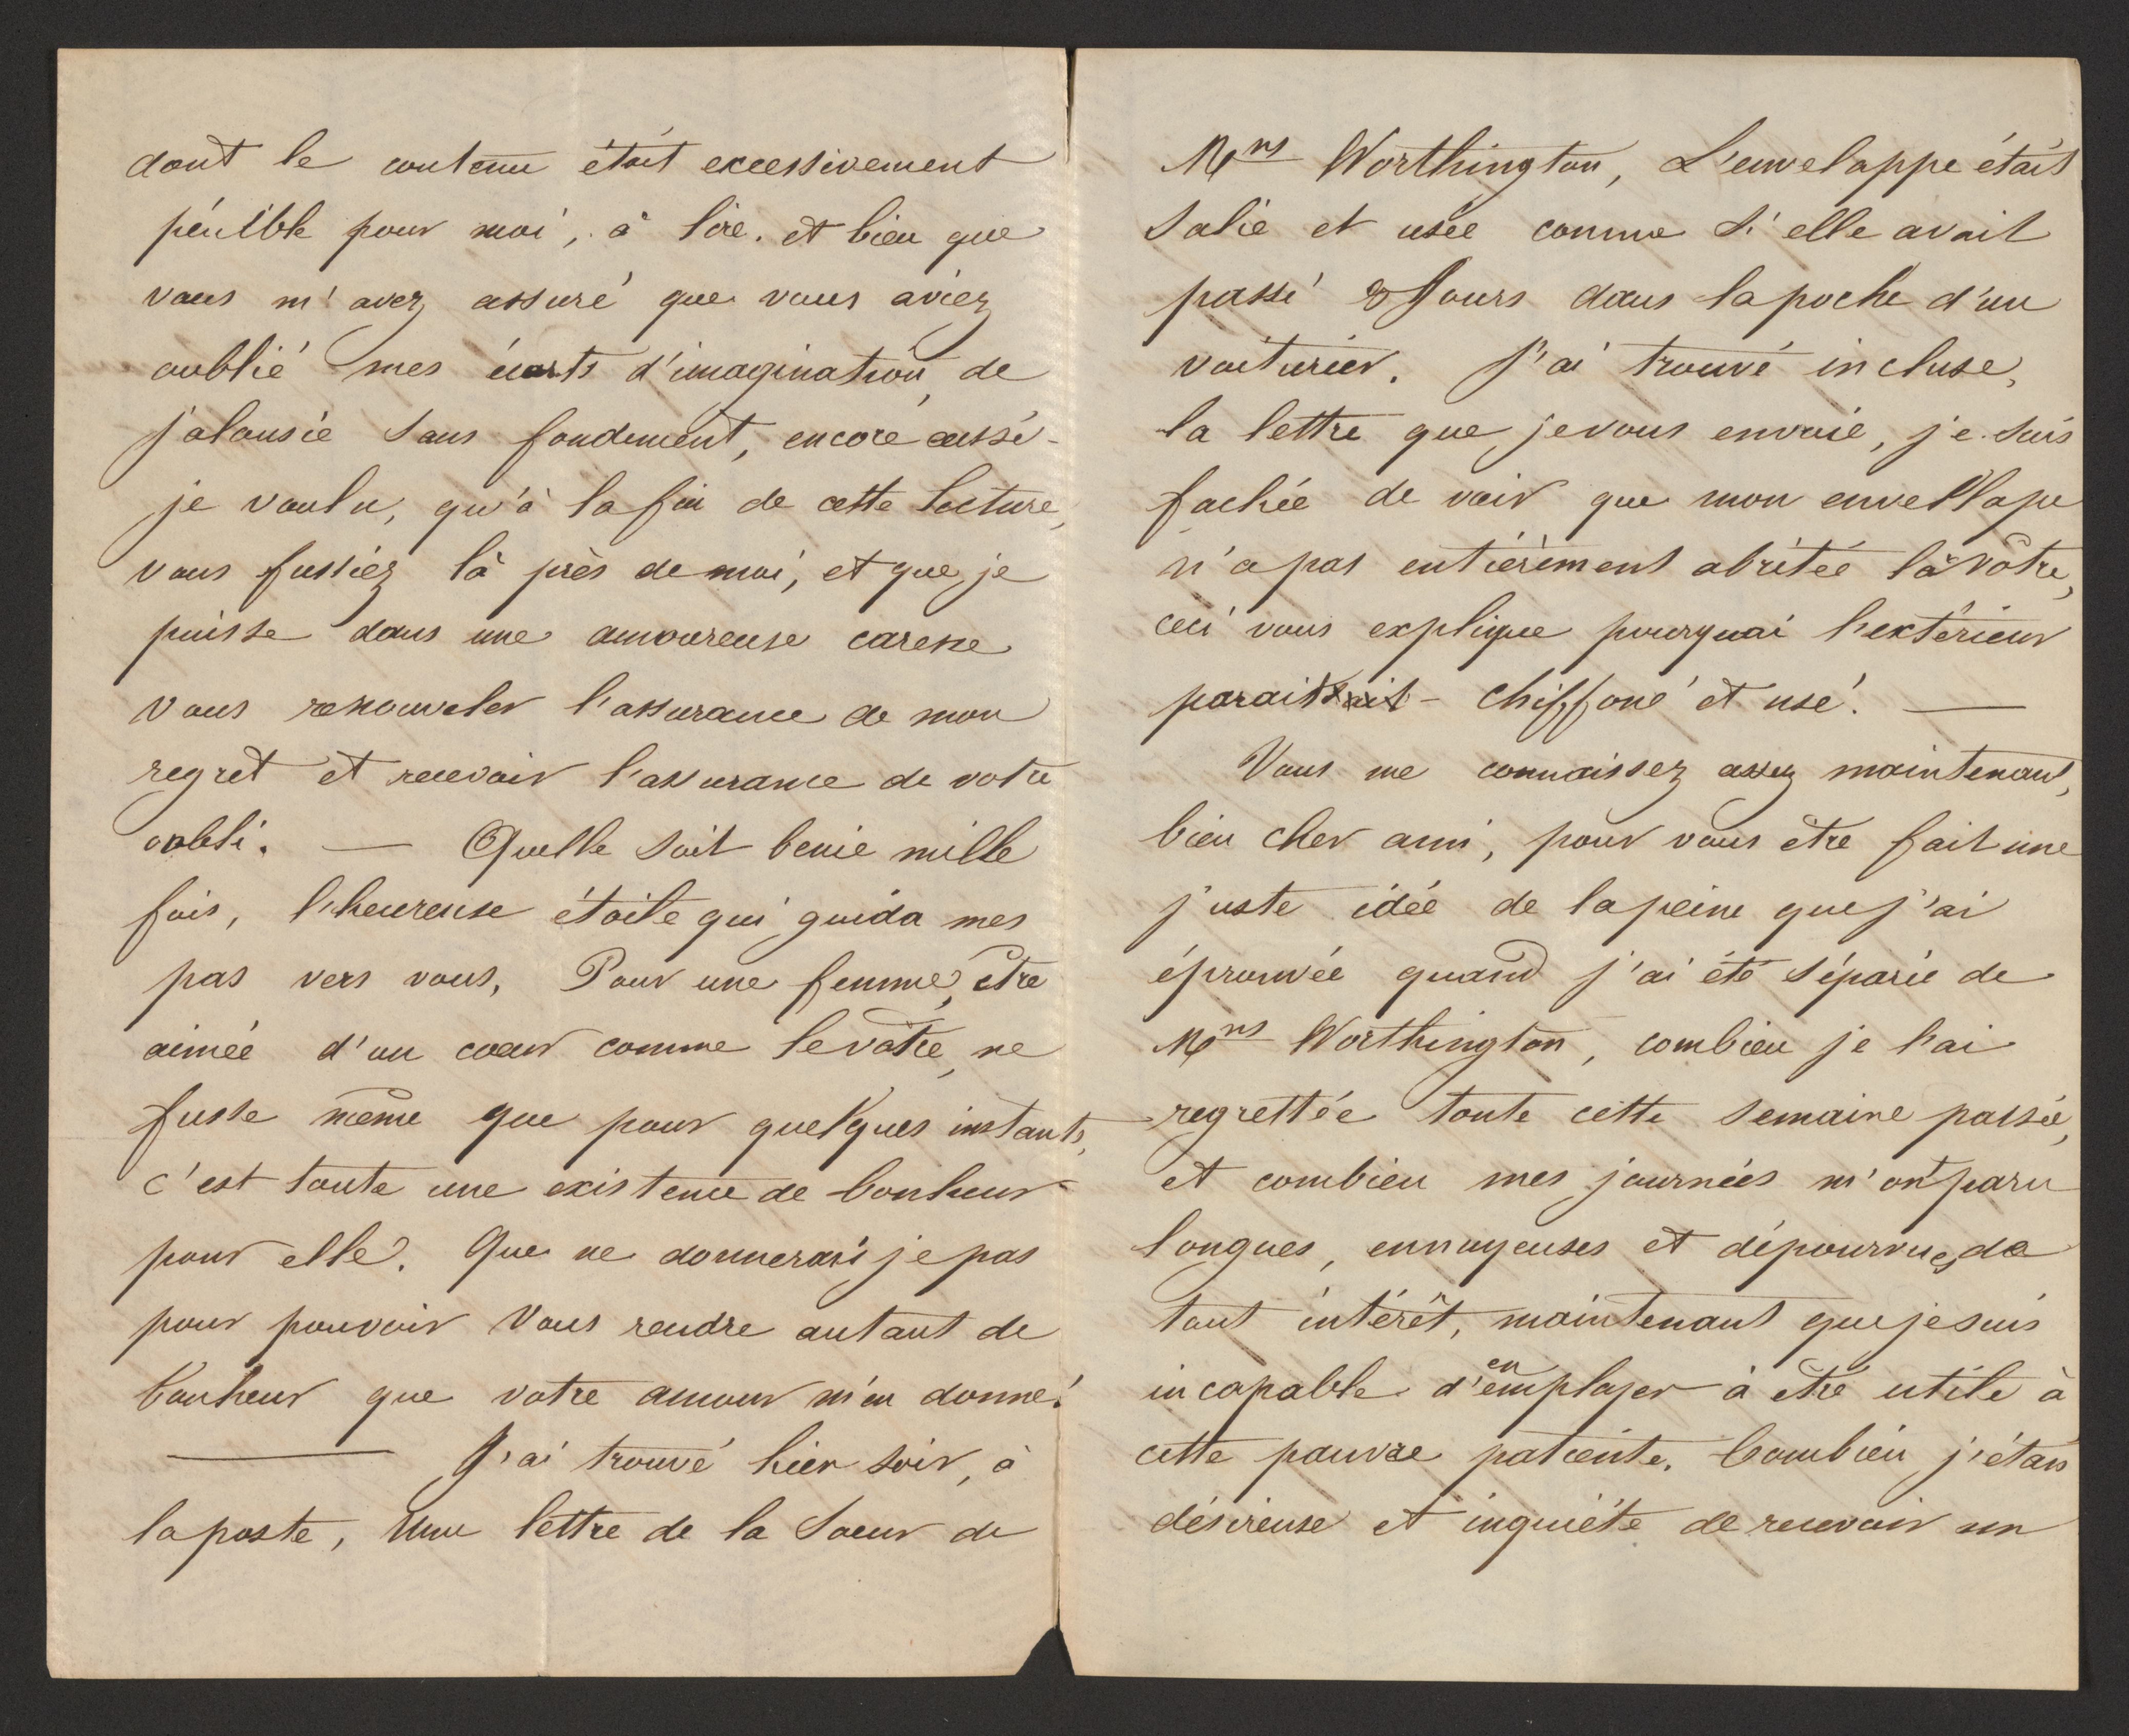 dont le contenu était excessivement
pénible pour moi, à lire. et bien que
vous m'avez assuré que vous aviez
oublié mes écarts d'imagination, de
jalousie sans fondement, encore eussé-
je voulu, qu'à la fin de cette lecture,
vous fussiez là près de moi, et que je
puisse dans une amoureuse caresse
vous renouveler l'assurance de mon
regret et recevoir l'assurance de votre
oubli. — Quelle soit benie mille
fois, l'heureuse étoile qui guida mes
pas vers vous, Pour une femme, être
aimée d'un coeur comme le vôtre, ne
fusse même que pour quelques instants,
c'est toute une existence de bonheur
pour elle. Que ne donnerais je pas
pour pouvoir vous rendre autant de
bonheur que votre amour m'en donne!
— J'ai trouvé hier soir, à
la poste, une lettre de la soeur de
Mrs Worthington, L'envelappe était
salie et usée comme si elle avait
passé 8 jours dans la poche d'un
voiturier. J'ai trouvé incluse,
la lettre que je vous envoie, je suis
fachée de voir que mon envellope
n'a pas entièrement abritée la vôtre,
ceci vous explique pourquoi l'extérieur
paraissait - chiffoné et usé. —
Vous me connaissez assez maintenant,
bien cher ami, pour vous être fait une
juste idée de la peine que j'ai
éprouvée quand j'ai été séparée de
Mrs Worthington, combien je l'ai
regrettée toute cette semaine passée,
et combien mes journées m'ont paru
longues, ennuyeuses et dépourvues de
tout intérêt, maintenant que je suis
incapable d'en employer à être utile à
cette pauvre patiente. Combien j'étais
désireuse et inquiète de recevoir un